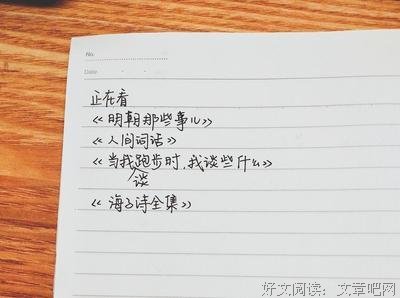 No.
Date
正在看
《明朝那些事儿》
《人间词话》
《当我跑步时,我谈些什么》
谈
《海子诗全集》
好文阅读:文章吧网